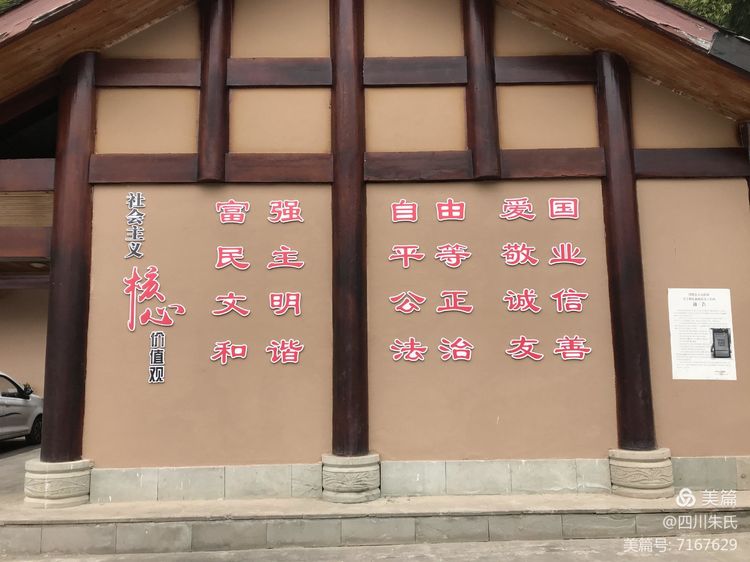 社会主义
核心
价值观
富强
民主
文明
和谐
自由
平等
公正
法治
爱国
敬业
诚信
友善
美篇
@四川朱氏
美篇号: 7167629